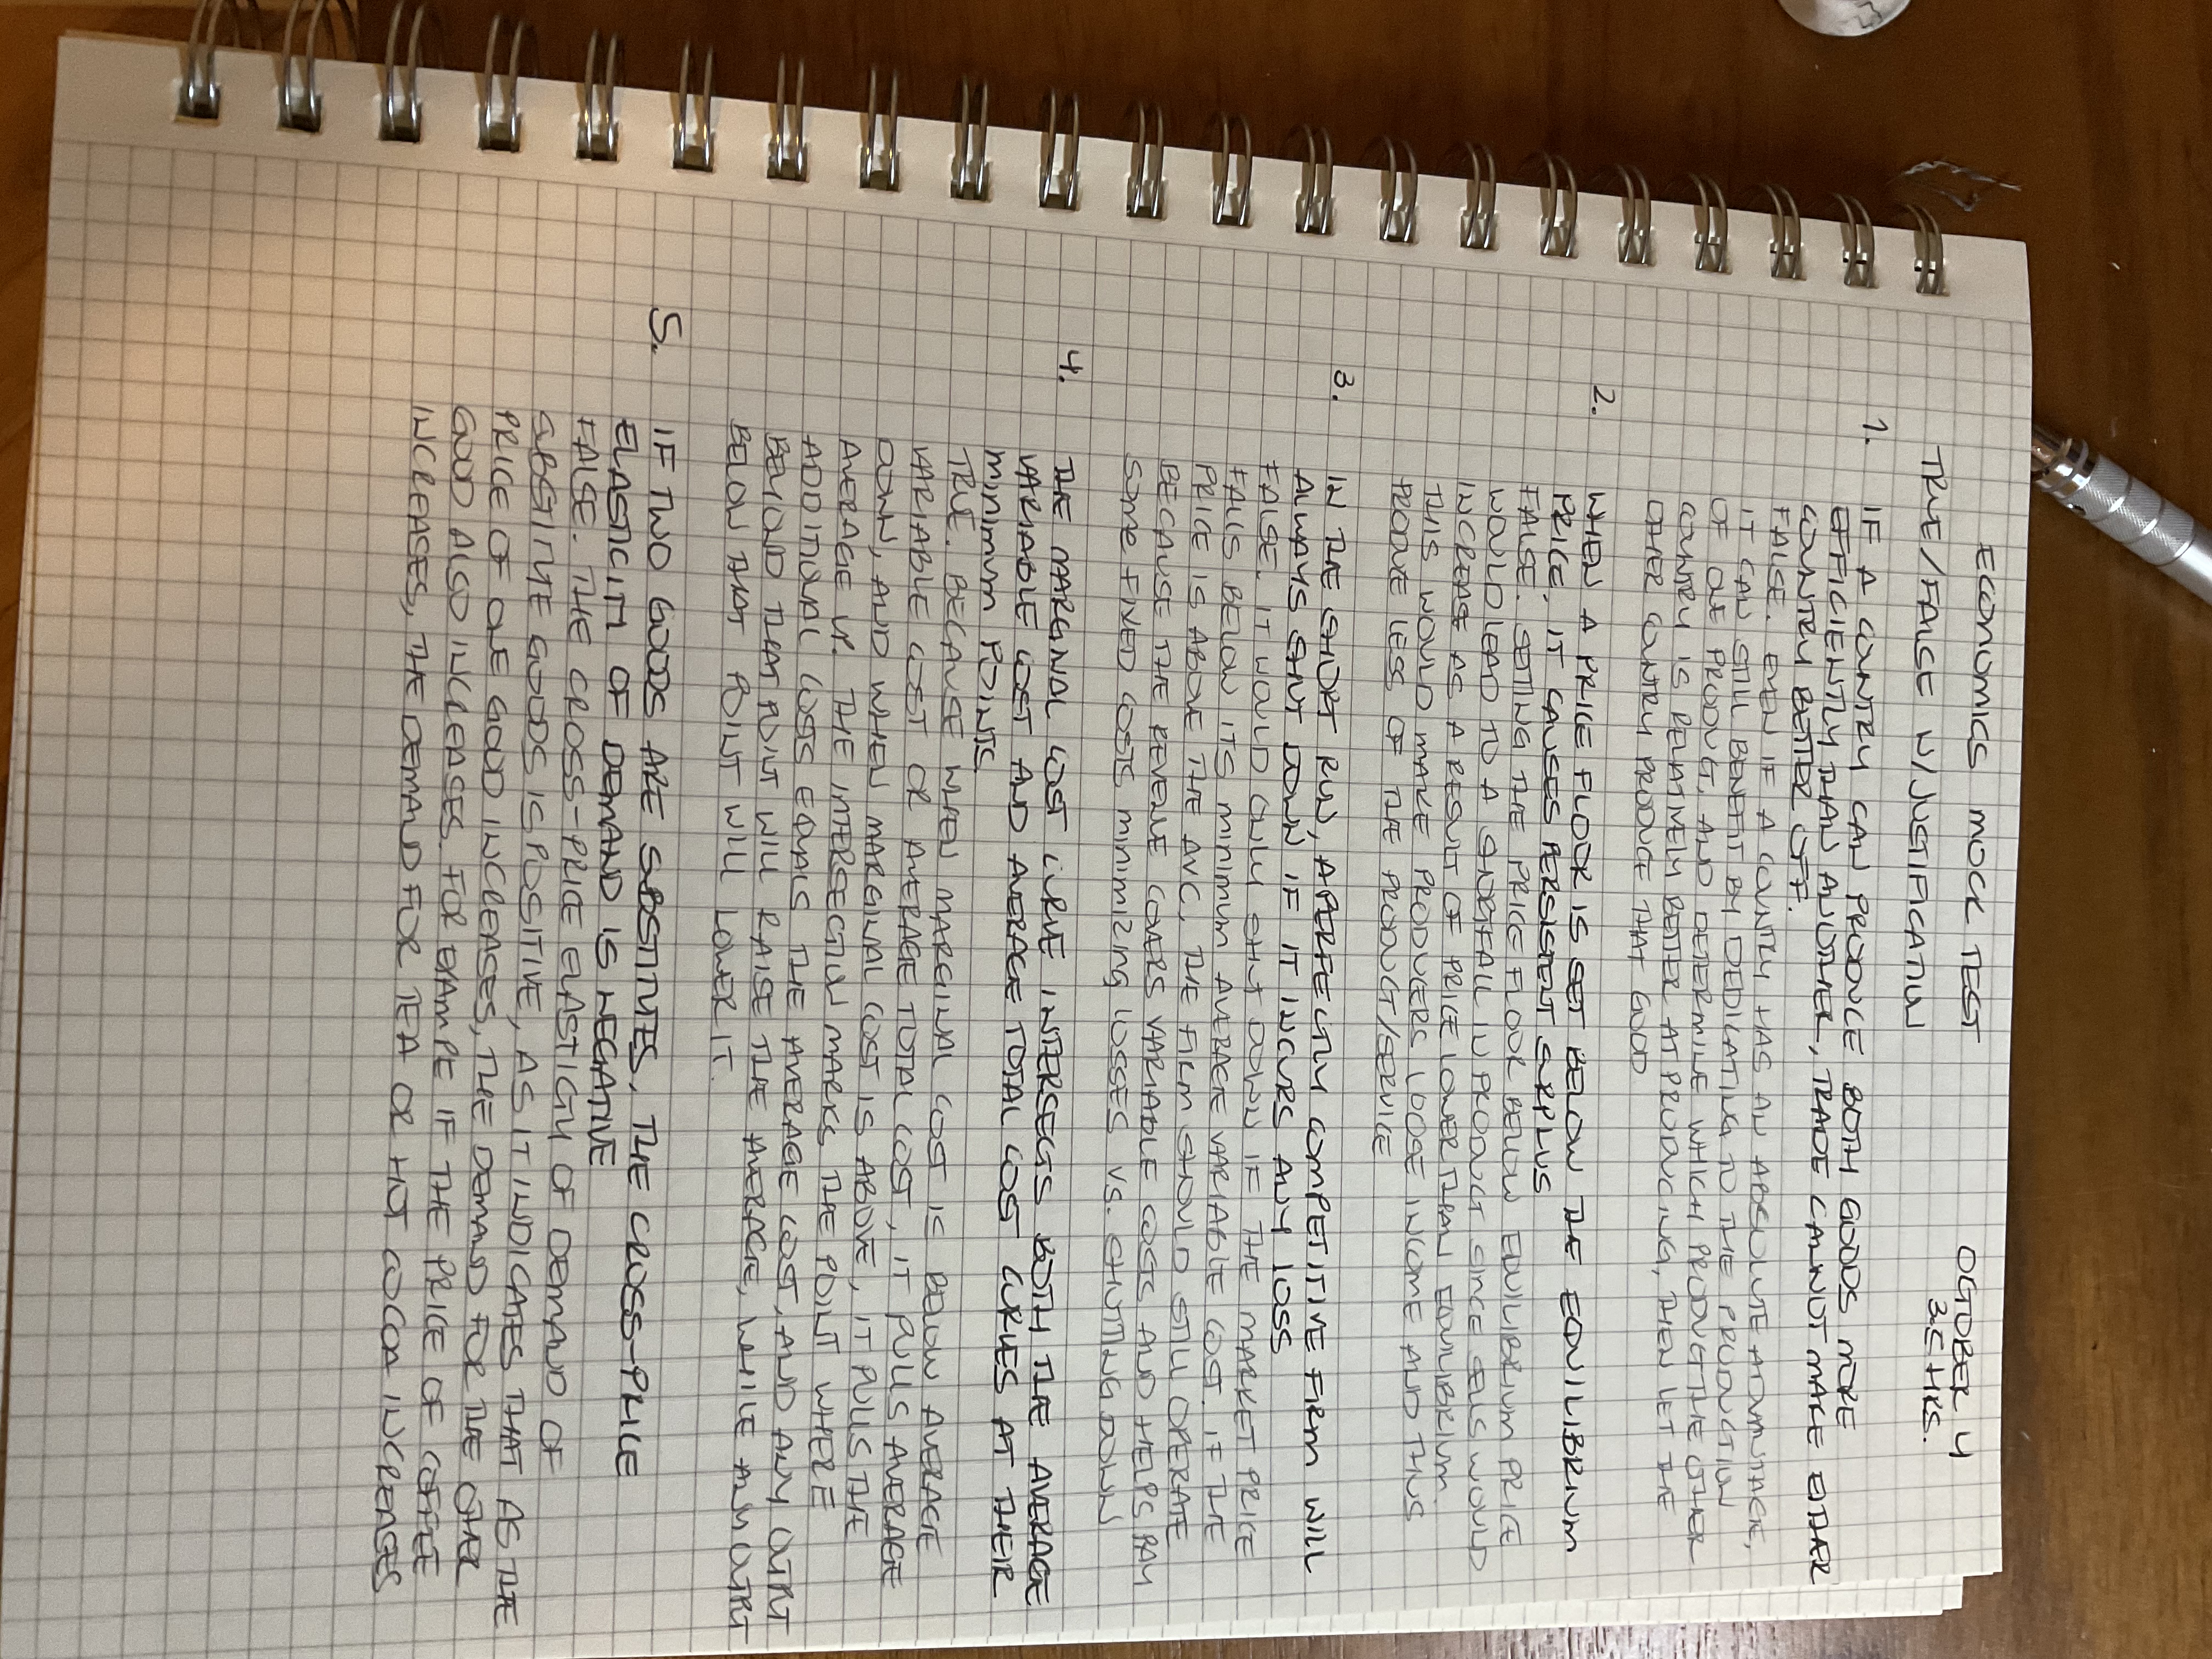 ECONOMICS MOCK TEST
OCTOBER 4
TRUE/FALSE W/JUSTIFICATION
3.5 HRS.
1. IF A COUNTRY CAN PRODUCE BOTH GOODS MORE
EFFICIENTLY THAN ANOTHER, TRADE CANNOT MAKE EITHER
COUNTRY BETTER OFF.
FALSE. EVEN IF A COUNTRY HAS AN ABSOLUTE ADVANTAGE,
IT CAN STILL BENEFIT BY DEDICATING TO THE PRODUCTION
OF ONE PRODUCT, AND DETERMINE WHICH PRODUCT THE OTHER
COUNTRY IS RELATIVELY BETTER AT PRODUCING, THEN LET THE
OTHER COUNTRY PRODUCE THAT GOOD
2. WHEN A PRICE FLOOR IS SET BELOW THE EQUILIBRIUM
PRICE, IT CAUSES PERSISTENT SURPLUS
FALSE. SETTING THE PRICE FLOOR BELOW EQUILIBRIUM PRICE
WOULD LEAD TO A SHORTFALL IN PRODUCT SINCE SELLS WOULD
INCREASE AS A RESULT OF PRICE LOWER THAN EQUILIBRIUM.
THIS WOULD MAKE PRODUCERS LOOSE INCOME AND THUS
PRODUCE LESS OF THE PRODUCT/SERVICE
3. IN THE SHORT RUN, A PERFECTLY COMPETITIVE FIRM WILL
ALWAYS SHUT DOWN IF IT INCURS ANY LOSS
FALSE. IT WOULD ONLY SHUT DOWN IF THE MARKET PRICE
FALLS BELOW ITS MINIMUM AVERAGE VARIABLE COST. IF THE
PRICE IS ABOVE THE AVC, THE FIRM SHOULD STILL OPERATE
BECAUSE THE REVENUE COVERS VARIABLE COSTS AND HELPS PAY
SOME FIXED COSTS MINIMIZING LOSSES VS. SHUTTING DOWN
4. THE MARGINAL COST CURVE INTERSECTS BOTH THE AVERAGE
VARIABLE COST AND AVERAGE TOTAL COST CURVES AT THEIR
MINIMUM POINTS.
TRUE. BECAUSE WHEN MARGINAL COST IS BELOW AVERAGE
VARIABLE COST OR AVERAGE TOTAL COST, IT PULLS AVERAGE
DOWN, AND WHEN MARGINAL COST IS ABOVE, IT PULLS THE
AVERAGE UP. THE INTERSECTION MARKS THE POINT WHERE
ADDITIONAL COSTS EQUALS THE AVERAGE COST, AND ANY OUTPUT
BEYOND THAT POINT WILL RAISE THE AVERAGE, WHILE ANY OUTPUT
BELOW THAT POINT WILL LOWER IT.
5. IF TWO GOODS ARE SUBSTITUTES, THE CROSS-PRICE
ELASTICITY OF DEMAND IS NEGATIVE
FALSE. THE CROSS-PRICE ELASTICITY OF DEMAND OF
SUBSTITUTE GOODS IS POSITIVE, AS IT INDICATES THAT AS THE
PRICE OF ONE GOOD INCREASES, THE DEMAND FOR THE OTHER
GOOD ALSO INCREASES. FOR EXAMPLE IF THE PRICE OF COFFEE
INCREASES, THE DEMAND FOR TEA OR HOT COCOA INCREASES